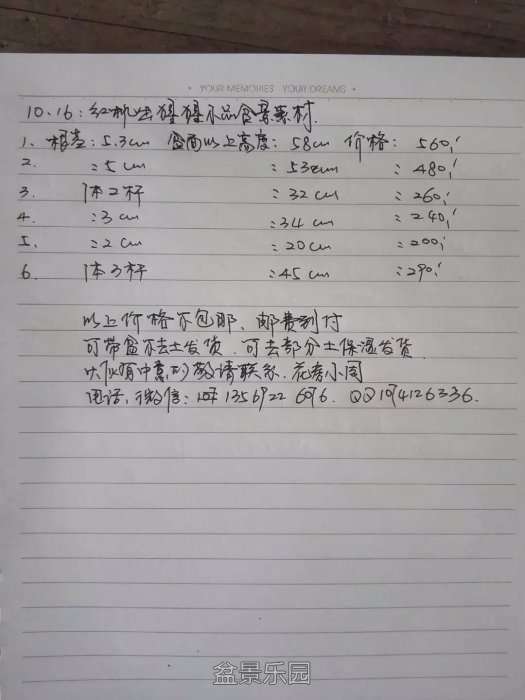 · YOUR MEMORIES YOUR DREAMS ·
10.16: 红机 小品盆景素材.
1、根茎: 5.3cm 盆面以上高度: 58cm 价格: 560,
2. : 5cm : 53cm : 480,
3. 1本2杆 : 32cm : 260,
4. : 3cm : 34cm : 240,
5. : 2cm : 20cm : 200,
6. 1本3杆 : 45cm : 290,
以上价格不包邮、邮费到付
可带盆不去土发货.可去部分土保湿发货.
以 有中意的敬请联系.花春小阁
电话,微信: QQ
盆景乐园